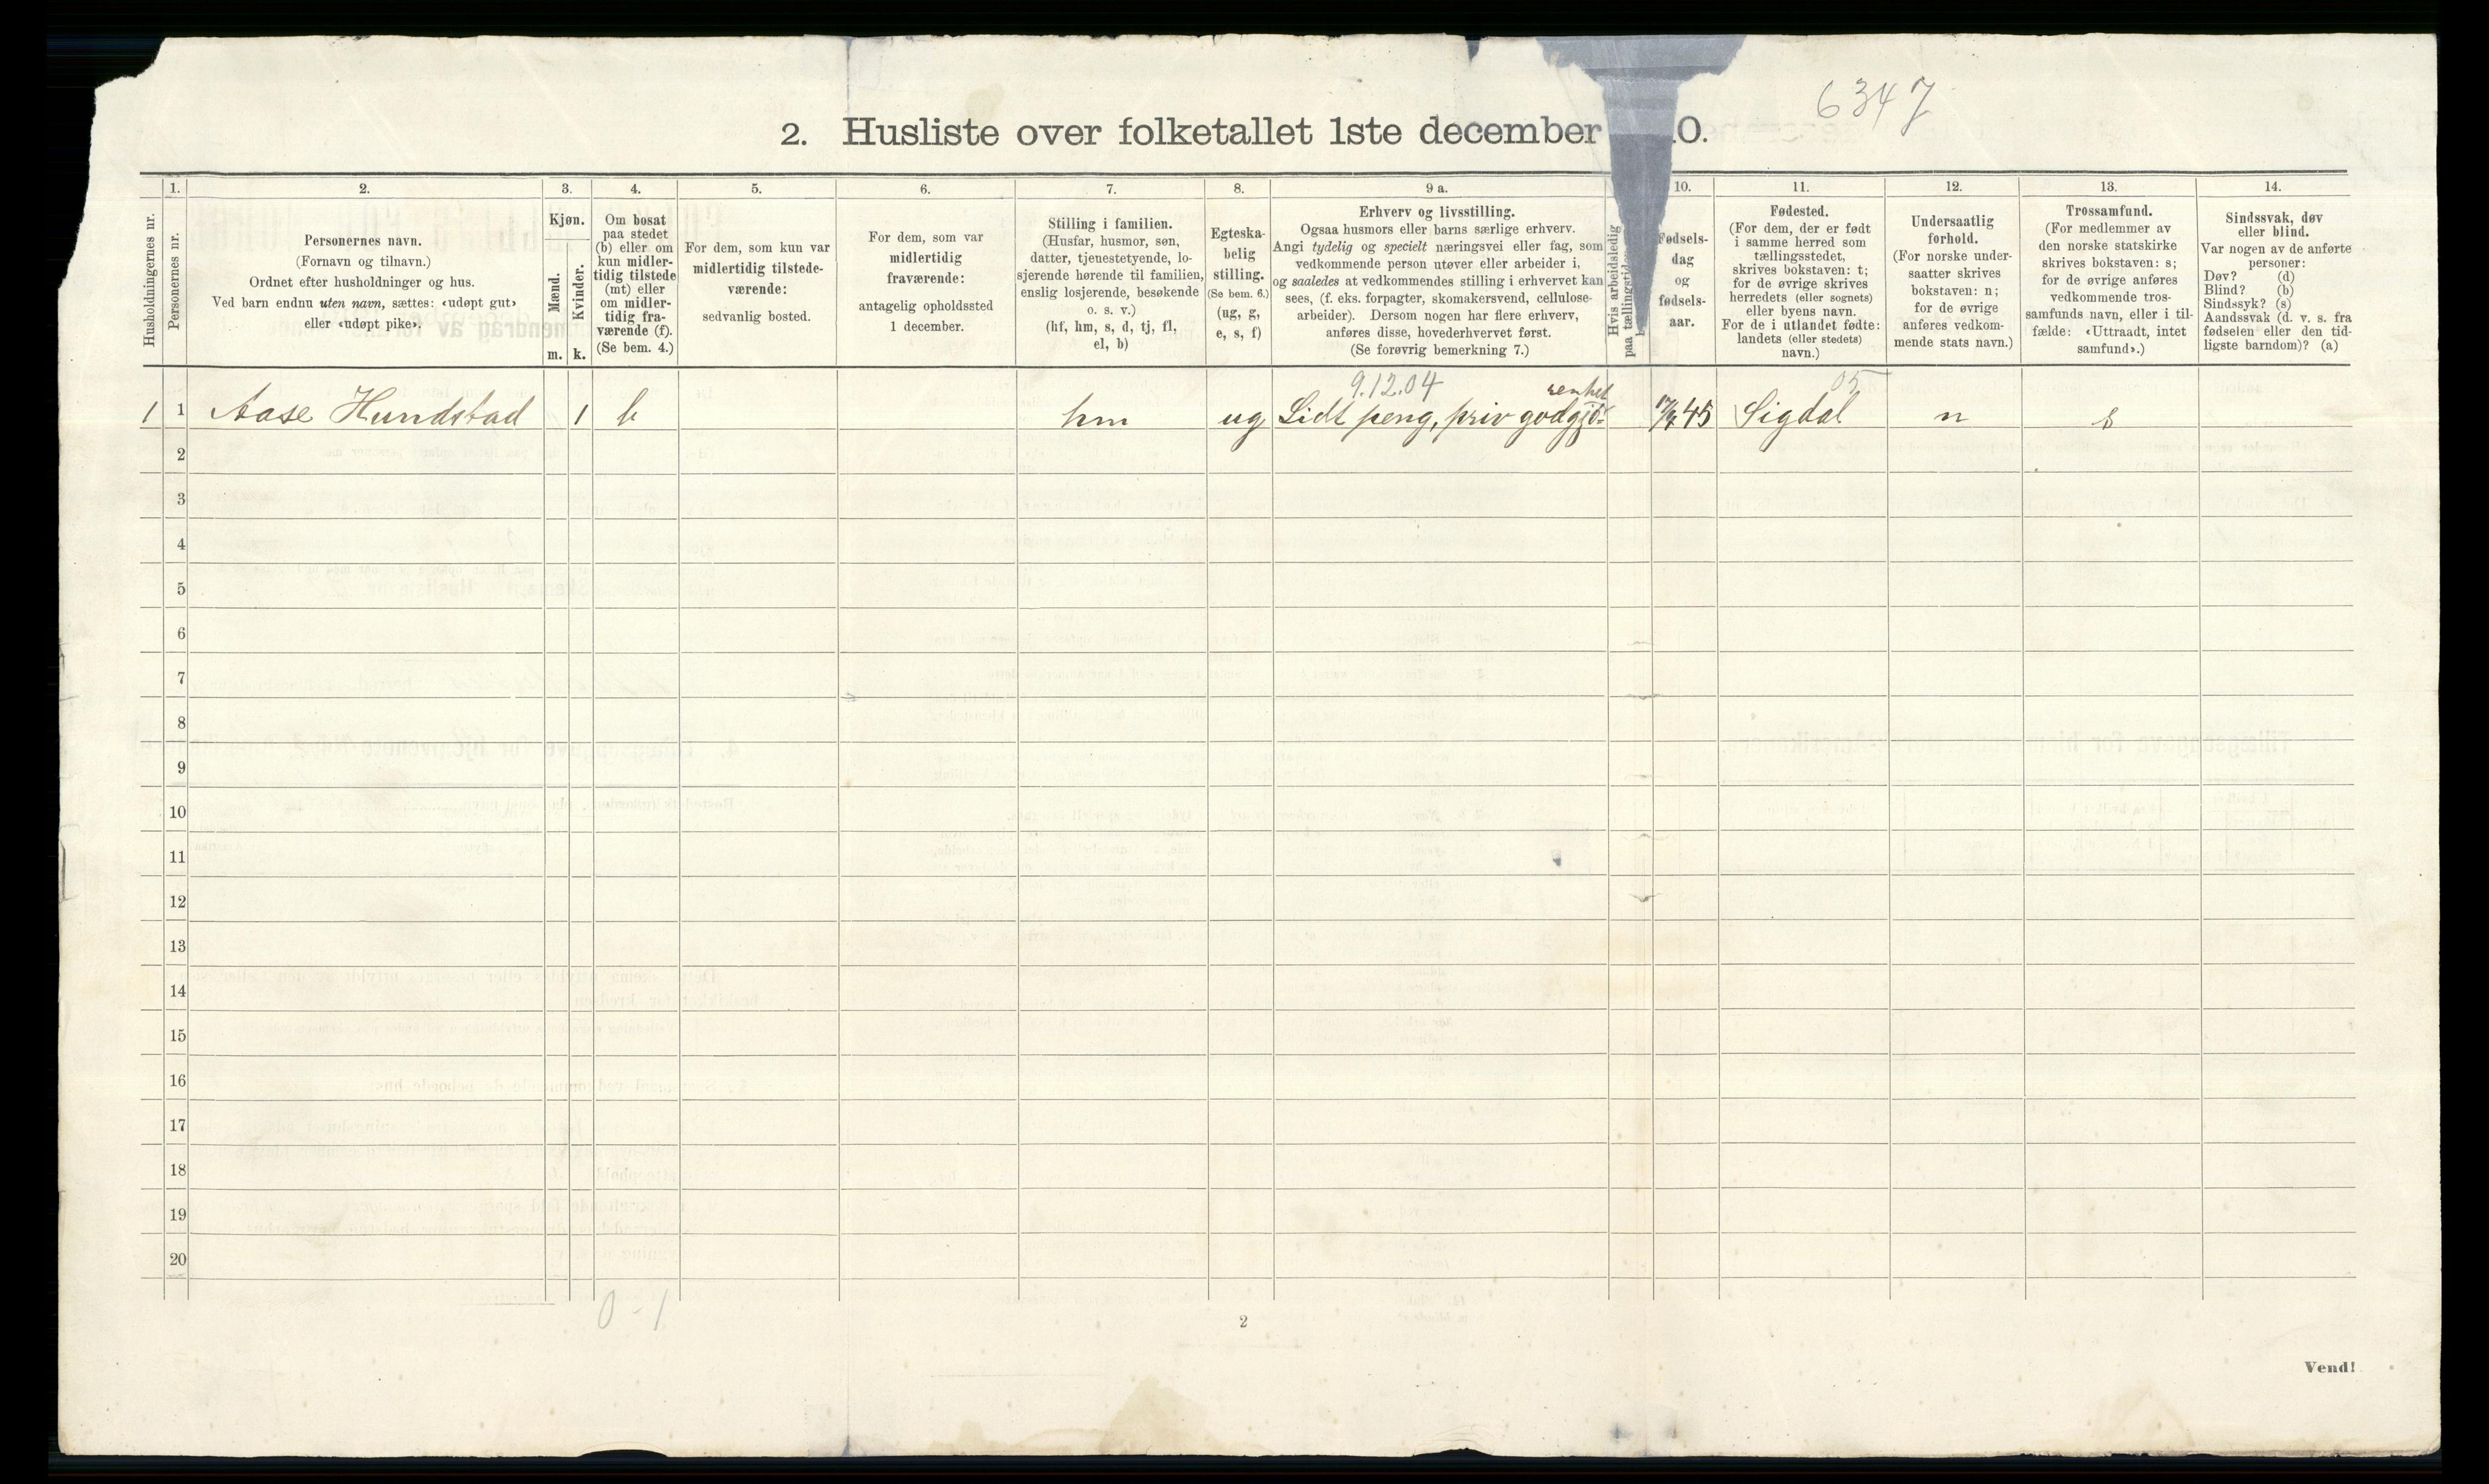 6347
2. Husliste over folketallet 1ste december 0.
Husholdningernes nr.
1.
Personernes nr.
2.
Personernes navn.
(Fornavn og tilnavn.)
Ordnet efter husholdninger og hus.
Ved barn endnu uten navn, sættes: «udøpt gut»
eller «udøpt pike».
3.
Kjøn.
Mænd.
Kvinder.
m. k.
4.
Om bosat
paa stedet
(b) eller om
kun midler-
tidig tilstede
(mt) eller
om midler-
tidig fra-
værende (f).
(Se bem. 4.)
5.
For dem, som kun var
midlertidig tilstede-
værende:
sedvanlig bosted.
6.
For dem, som var
midlertidig
fraværende:
antagelig opholdssted
1 december.
7.
Stilling i familien.
(Husfar, husmor, søn,
datter, tjenestetyende, lo-
sjerende hørende til familien,
enslig losjerende, besøkende
o. s. v.)
(hf, hm, s, d, tj, fl,
el, b)
8.
Egteska-
belig
stilling.
(Se bem. 6.)
(ug, g,
e, s, f)
9 a.
Erhverv og livsstilling.
Ogsaa husmors eller barns særlige erhverv.
Angi tydelig og specielt næringsvei eller fag, som
vedkommende person utøver eller arbeider i,
og saaledes at vedkommendes stilling i erhvervet kan
sees, (f. eks. forpagter, skomakersvend, cellulose-
arbeider). Dersom nogen har flere erhverv,
anføres disse, hovederhvervet først.
(Se forøvrig bemerkning 7.)
Hvis arbeidsledig
paa tællingstiden
10.
Fødsels-
dag
og
fødsels-
aar.
11.
Fødested.
(For dem, der er født
i samme herred som
tællingsstedet,
skrives bokstaven: t;
for de øvrige skrives
herredets (eller sognets)
eller byens navn.
For de i utlandet fødte:
landets (eller stedets)
navn.)
12.
Undersaatlig
forhold.
(For norske under-
saatter skrives
bokstaven: n;
for de øvrige
anføres vedkom-
mende stats navn.)
13.
Trossamfund.
(For medlemmer av
den norske statskirke
skrives bokstaven: s;
for de øvrige anføres
vedkommende tros-
samfunds navn, eller i til-
fælde: «Uttraadt, intet
samfund».)
14.
Sindssvak, døv
eller blind.
Var nogen av de anførte
personer:
Døv? (d)
Blind? (b)
Sindssyk? (s)
Aandssvak (d. v. s. fra
fødselen eller den tid-
ligste barndom)? (a)
9.12.04 renhet 05
1 1 Aase Hundstad 1 b hm ug Lidt peng, priv godgjö- 17/7 45 Sigdal n s
2
3
4
5
6
7
8
9
10
11
12
13
14
15
16
17
18
19
20
0 - 1
2
Vend!